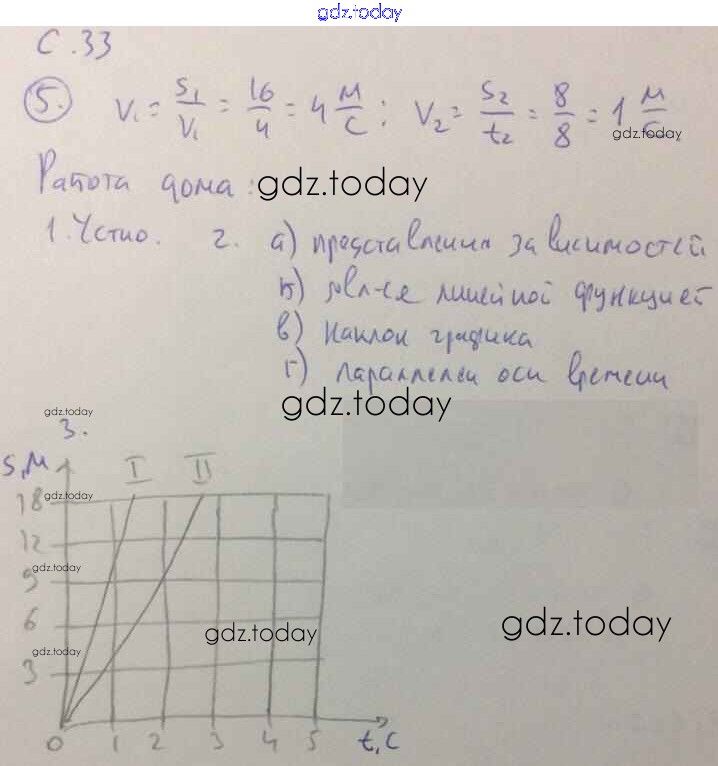 gdz.today
С.33
5. V₁ = S₁/V₁ = 16/4 = 4 м/с; V₂ = S₂/t₂ = 8/8 = 1 м/с
gdz.today
Работа дома: gdz.today
1. Устно. 2. а) представления зависимостей
б) явл-ся линейной функцией
в) наклон графика
г) параллелен оси времени
gdz.today
gdz.today
3.
S,м I II
18 gdz.today
12
9 gdz.today
6 gdz.today gdz.today
3 gdz.today
0 1 2 3 4 5 t,с